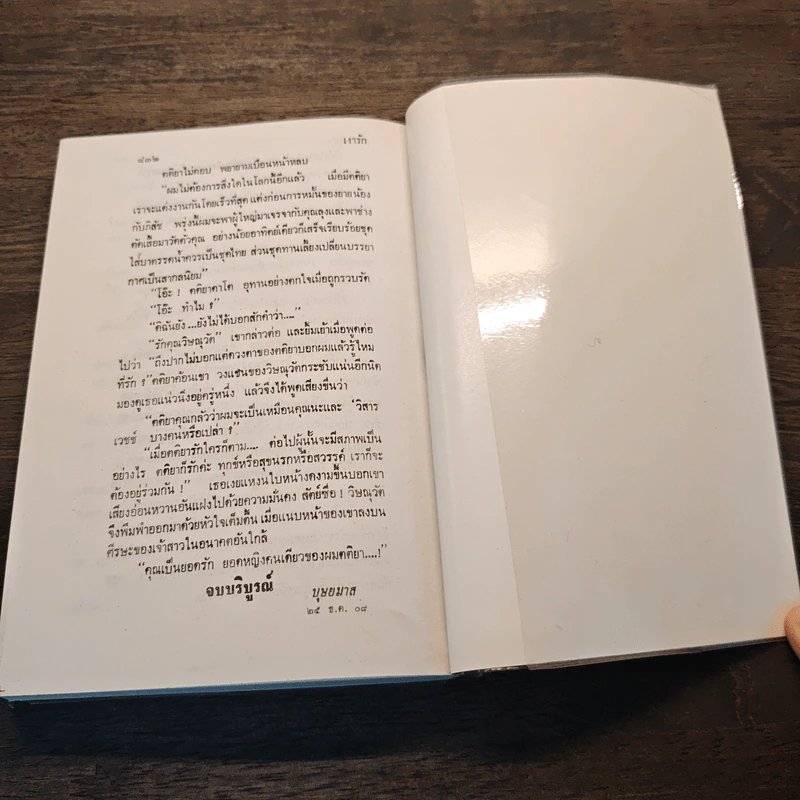 ๘๓๒ เงารัก
ตติยาไม่ตอบ พยายามเบือนหน้าหลบ
“ผมไม่ต้องการสิ่งใดในโลกนี้อีกแล้ว เมื่อมีตติยา
เราจะแต่งงานกันโดยเร็วที่สุด แต่งก่อนการหมั้นของยายน้อง
กับภิสัช พรุ่งนี้ผมจะพาผู้ใหญ่มาเจรจากับคุณลุงและพาช่าง
ตัดเสื้อมาวัดตัวคุณ อย่างน้อยอาทิตย์เดียวก็เสร็จเรียบร้อยชุด
ใส่บาตรรดน้ำควรเป็นชุดไทย ส่วนชุดทานเลี้ยงเปลี่ยนบรรยา
กาศเป็นสากลนิยม”
“โอ๊ะ ! ตติยาตาโต อุทานอย่างตกใจเมื่อถูกรวบรัด
“โอ๊ะ ทำไม ?
“ดิฉันยัง...ยังไม่ได้บอกสักคำว่า....”
“รักคุณวิษณุวัต” เขากล่าวต่อ และยิ้มเย้าเมื่อพูดต่อ
ไปว่า “ถึงปากไม่บอกแต่ดวงตาของตติยาบอกผมแล้วรู้ไหม
ที่รัก ?” ตติยาค้อนเขา วงแขนของวิษณุวัตกระชับแน่นอีกนิด
มองดูเธอแน่วนิ่งอยู่ครู่หนึ่ง แล้วจึงได้พูดเสียงขื่นว่า
“ตติยาคุณกลัวว่าผมจะเป็นเหมือนคุณนะและ ‘วิสาร
เวชช์ บางคนหรือเปล่า ?
“เมื่อตติยารักใครก็ตาม.... ต่อไปผู้นั้นจะมีสภาพเป็น
อย่างไร ตติยาก็รักค่ะ ทุกข์หรือสุขนรกหรือสวรรค์ เราก็จะ
ต้องอยู่ร่วมกัน !” เธอเงยแหงนใบหน้างดงามขึ้นบอกเขา
เสียงอ่อนหวานอันแฝงไปด้วยความมั่นคง สัตย์ซื่อ ! วิษณุวัต
จึงพึมพำออกมาด้วยหัวใจเต็มตื้น เมื่อแนบหน้าของเขาลงบน
ศีรษะของเจ้าสาวในอนาคตอันใกล้
“คุณเป็นยอดรัก ยอดหญิงคนเดียวของผมตติยา....!”
จบบริบูรณ์
บุษยมาส
๒๕ ธ.ค. ๐๘